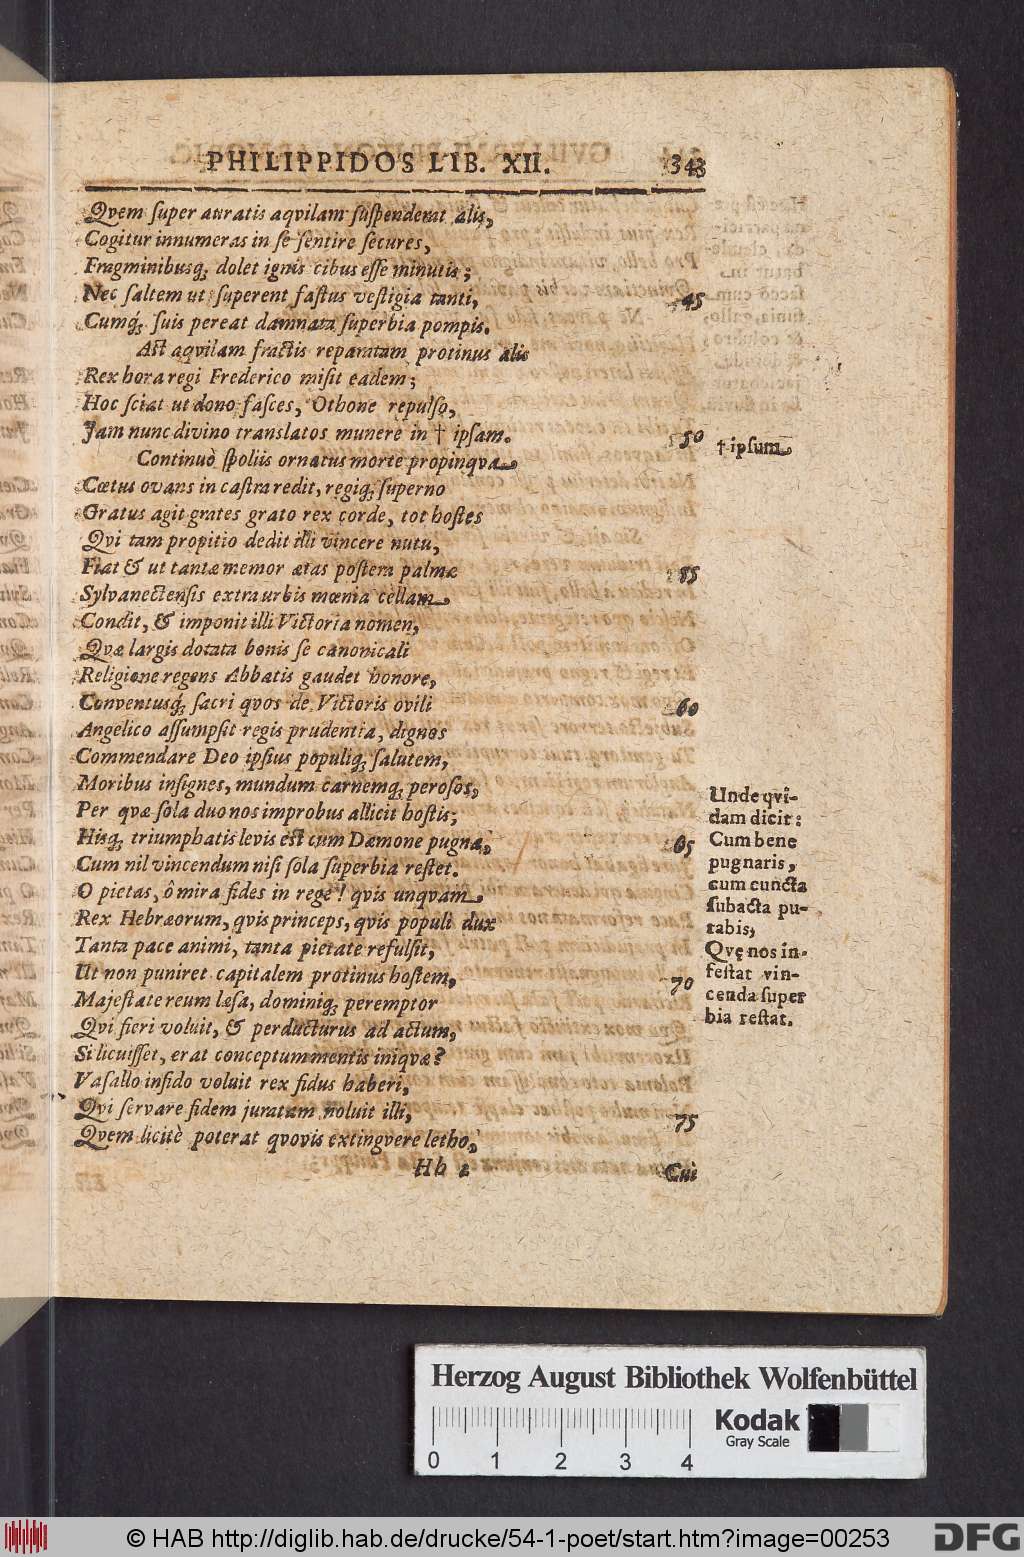 PHILIPPIDOS LIB. XII. 343
Qvem super auratis aqvilam suspenderat alis,
Cogitur innumeras in se sentire secures,
Fragminibusq; dolet ignis cibus esse minutis;
Nec saltem ut superent fastus vestigia tanti, 45
Cumq́; suis pereat damnata superbia pompis.
Ast aqvilam fractis reparatam protinus alis
Rex hora regi Frederico misit eadem;
Hoc sciat ut dono fasces, Othone repulso,
Jam nunc divino translatos munere in † ipsam. 50
† ipsum
Continuò spoliis ornatus morte propinqva
Cœtus ovans in castra redit, regiq; superno
Gratus agit grates grato rex corde, tot hostes
Qvi tam propitio dedit illi vincere nutu,
Fiat & ut tantæ memor ætas postera palmæ 55
Sylvanectensis extra urbis mœnia cellam
Condit, & imponit illi Victoria nomen,
Qvæ largis dotata bonis se canonicali
Religione regens Abbatis gaudet honore,
Conventusq́; sacri qvos de Victoris ovili 60
Angelico assumpsit regis prudentia, dignos
Commendare Deo ipsius populiq; salutem,
Moribus insignes, mundum carnemq; perosos,
Per qvæ sola duo nos improbus allicit hostis;
Hisq; triumphatis levis est cum Dæmone pugna, 65
Cum nil vincendum nisi sola superbia restet.
O pietas, ô mira fides in rege! qvis unqvam
Rex Hebræorum, qvis princeps, qvis populi dux
Tanta pace animi, tanta pietate refulsit,
Ut non puniret capitalem protinus hostem, 70
Majestate reum læsa, dominiq; peremptor
Qvi fieri voluit, & perducturus ad actum,
Si licuisset, erat conceptum mentis iniqvæ?
Vasallo infido voluit rex fidus haberi,
Qvi servare fidem juratam noluit illi, 75
Qvem licitè poterat qvovis extingvere letho,
Unde qvi-
dam dicit:
Cum bene
pugnaris,
cum cuncta
subacta pu-
tabis,
Qvę nos in-
festat vin-
cenda super
bia restat.
Hh 2 Cui
Herzog August Bibliothek Wolfenbüttel
Kodak
Gray Scale
0 1 2 3 4
© HAB http://diglib.hab.de/drucke/54-1-poet/start.htm?image=00253
DFG